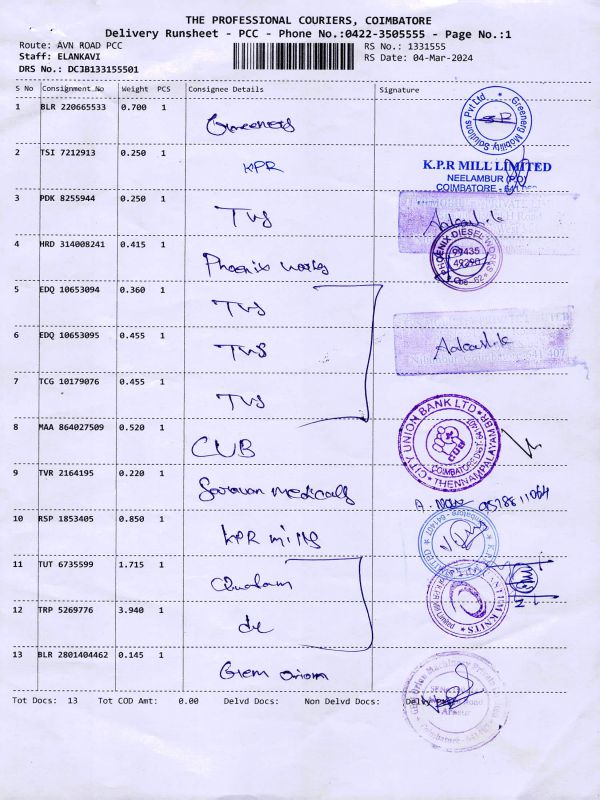 THE PROFESSIONAL COURIERS, COIMBATORE
Delivery Runsheet - PCC - Phone No.:0422-3505555 - Page No.:1
Route: AVN ROAD PCC RS No.: 1331555
Staff: ELANKAVI RS Date: 04-Mar-2024
DRS No.: DCJB133155501
S No Consignment No Weight PCS Consignee Details Signature
1 BLR 220665533 0.700 1 Greenerg
Greenerg Mobility Solutions Pvt Ltd.
2 TSI 7212913 0.250 1 KPR
K.P.R MILL LIMITED
NEELAMBUR (P.O)
COIMBATORE - 641
3 PDK 8255944 0.250 1 TVS
4 HRD 314008241 0.415 1 Phoenix works
PHOENIX DIESEL WORKS
99435
Cbe - 62
5 EDQ 10653094 0.360 1 TVS
6 EDQ 10653095 0.455 1 TVS
641 407
7 TCG 10179076 0.455 1 TVS
8 MAA 864027509 0.520 1 CUB
CITY UNION BANK LTD
CUB
COIMBATORE DIST. 641407
THENNAMPALAYAM BR
9 TVR 2164195 0.220 1 Saravan medicals
10 RSP 1853405 0.850 1 KPR mills
Coimbatore - 641407
11 TUT 6735599 1.715 1
KNITS
12 TRP 5269776 3.940 1 do
13 BLR 2801404462 0.145 1 Grem orion
Tot Docs: 13 Tot COD Amt: 0.00 Delvd Docs: Non Delvd Docs: